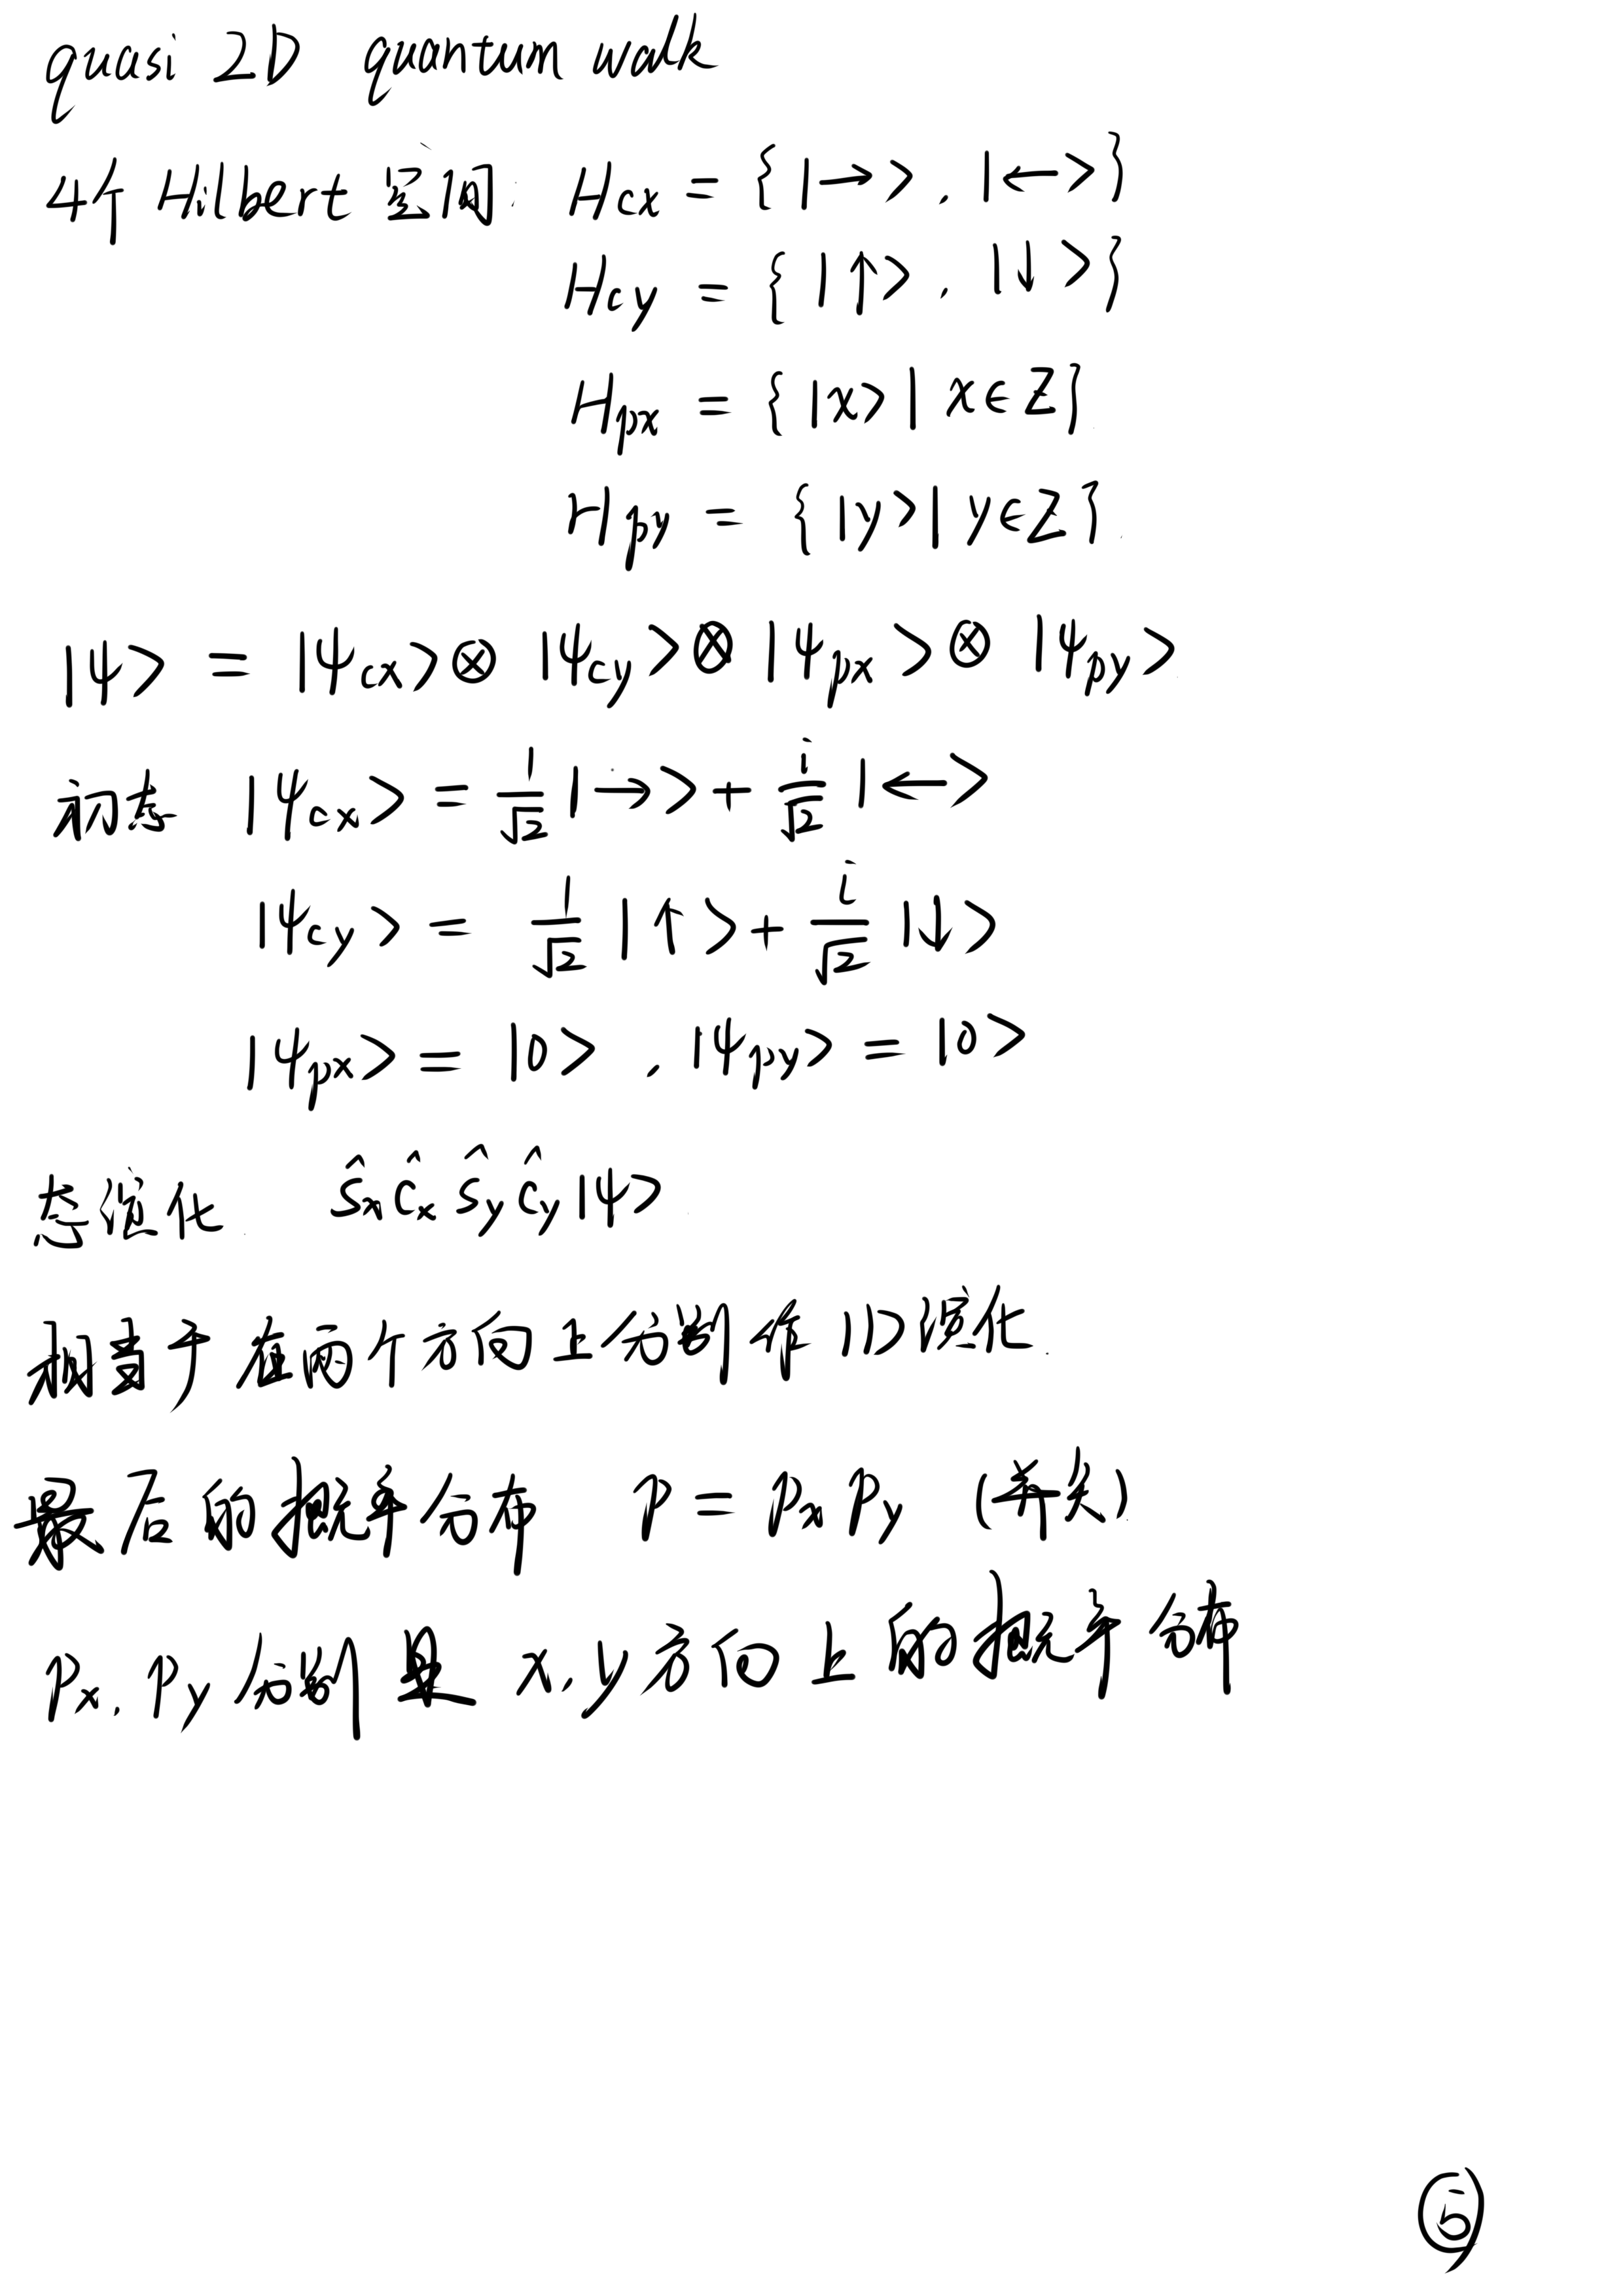 quasi 2D quantum walk
4个 Hilbert 空间: H_{cx} = { |→>, |←> }
H_{cy} = { |↑>, |↓> }
H_{px} = { |x> | x∈Z }
H_{py} = { |y> | y∈Z }.
|ψ> = |ψ_{cx}> ⊗ |ψ_{cy}> ⊗ |ψ_{px}> ⊗ |ψ_{py}>
初态 |ψ_{cx}> = \frac{1}{\sqrt{2}} |→> + \frac{i}{\sqrt{2}} |←>
|ψ_{cy}> = \frac{1}{\sqrt{2}} |↑> + \frac{i}{\sqrt{2}} |↓>
|ψ_{px}> = |0>, |ψ_{py}> = |0>
态演化 \hat{S}_x \hat{C}_x \hat{S}_y \hat{C}_y |ψ>
相当于在两个方向上分别作1D演化.
最后的概率分布 P = P_x P_y (并矢)
P_x, P_y 分别是 x, y方向上的概率分布
⑤